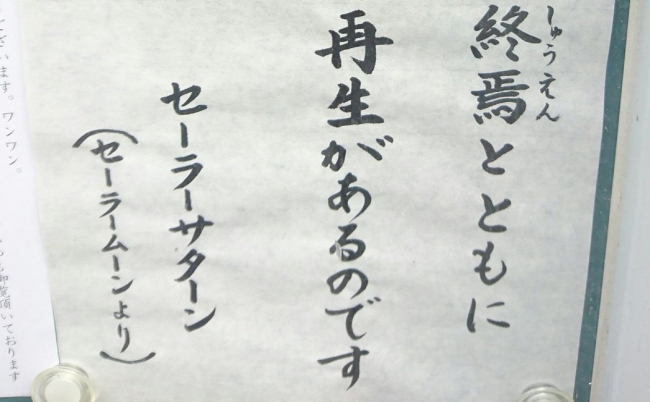 終焉とともに
しゅうえん
再生があるのです
セーラーサターン
（セーラームーンより）
ございます。ワンワン。
頂いております